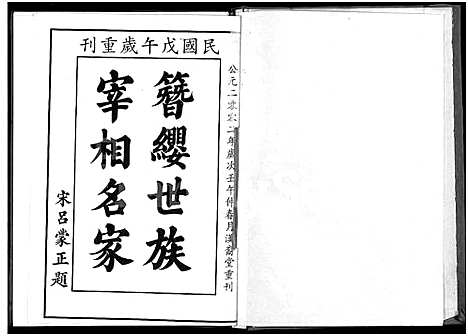 民國戊午歲重刊
簪纓世族
宰相名家
宋呂蒙正題
公元二零零二年歲次壬午仲春月滎陽堂重刊